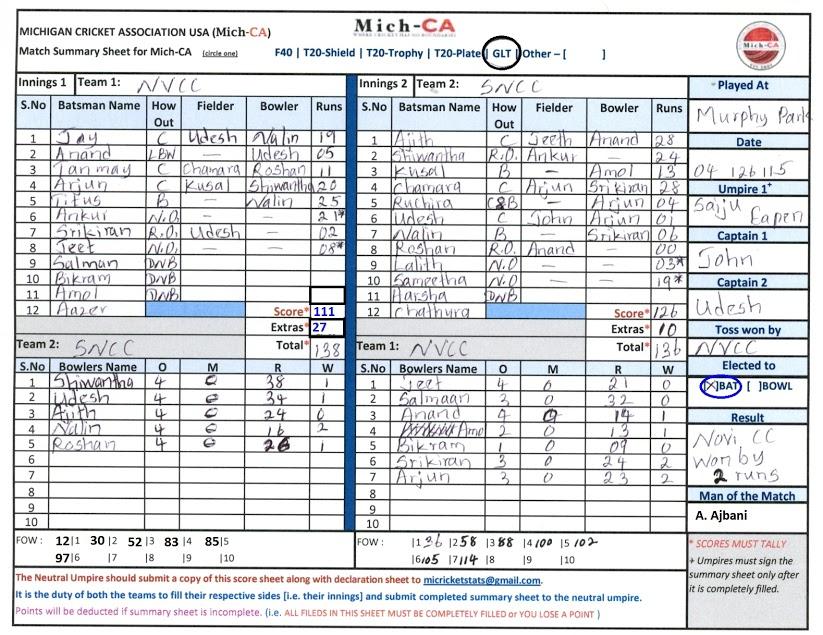 MICHIGAN CRICKET ASSOCIATION USA (Mich-CA)
Mich-CA
Match Summary Sheet for Mich-CA (circle one) F40 | T20-Shield | T20-Trophy | T20-Plate | GLT | Other – [ ]
Mich-CA
Innings 1 Team 1: NVCC
S.No Batsman Name How Out Fielder Bowler Runs
1 Jay C Udesh Nalin 19
2 Anand LBW — Udesh 05
3 Tanmay C Chamara Roshan 11
4 Arjun C Kusal Shiwantha 20
5 Titus B — Nalin 25
6 Ankur N.O. — — 21*
7 Srikiran R.O. Udesh — 02
8 Jeet N.O. — — 08*
9 Salman DNB
10 Bikram DNB
11 Amol DNB
12 Aazer Score* 111
Extras* 27
Total* 138
Team 2: SNCC
S.No Bowlers Name O M R W
1 Shiwantha 4 0 38 1
2 Udesh 4 0 34 1
3 Ajith 4 0 24 0
4 Nalin 4 0 16 2
5 Roshan 4 0 26 1
6
7
8
9
10
FOW : 12|1 30|2 52|3 83|4 85|5
97|6 |7 |8 |9 |10
Innings 2 Team 2: SNCC
S.No Batsman Name How Out Fielder Bowler Runs
1 Ajith C Jeeth Anand 28
2 Shiwantha R.O. Ankur — 24
3 Kusal B — Amol 13
4 Chamara C Arjun Srikiran 28
5 Ruchira C&B — Arjun 04
6 Udesh C John Arjun 01
7 Nalin B — Srikiran 06
8 Roshan R.O. Anand 00
9 Lalith N.O — — 03*
10 Sameetha N.O — — 19*
11 Harsha DNB
12 Chathura Score* 126
Extras* 10
Total* 136
Team 1: NVCC
S.No Bowlers Name O M R W
1 Jeet 4 0 21 0
2 Salmaan 3 0 32 0
3 Anand 4 0 14 1
4 Amol 2 0 13 1
5 Bikram 1 0 09 0
6 Srikiran 3 0 24 2
7 Arjun 3 0 23 2
8
9
10
FOW : |1 36 |2 58 |3 88 |4 100 |5 102
|6 105 |7 114 |8 |9 |10
Played At
Murphy Park
Date
04 126 115
Umpire 1+
Saiju
Eapen
Captain 1
John
Captain 2
Udesh
Toss won by
NVCC
Elected to
[X]BAT [ ]BOWL
Result
Novi CC
won by
2 runs
Man of the Match
A. Ajbani
* SCORES MUST TALLY
+ Umpires must sign the
summary sheet only after
it is completely filled.
The Neutral Umpire should submit a copy of this score sheet along with declaration sheet to micricketstats@gmail.com.
It is duty of both the teams to fill their respective sides [i.e. their innings] and submit completed summary sheet to the neutral umpire.
Points will be deducted if summary sheet is incomplete. (i.e. ALL FILEDS IN THIS SHEET MUST BE COMPLETELY FILLED or YOU LOSE A POINT )